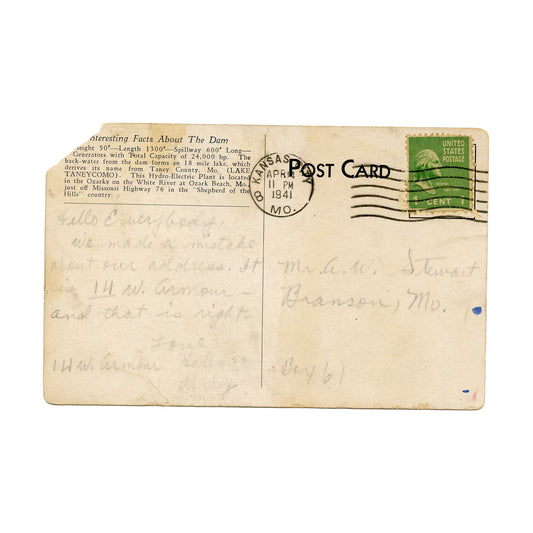 nteresting Facts About The Dam
eight 50'—Length 1300'—Spillway 600' Long—
Generators with Total Capacity of 24,000 hp. The
back-water from the dam forms an 18 mile lake, which
derives its name from Taney County, Mo. (LAKE
TANEYCOMO). This Hydro-Electric Plant is located
in the Ozarks on the White River at Ozark Beach, Mo.,
just off Missouri Highway 76 in the "Shepherd of the
Hills" country.
Hello Everybody,
we made a mistake
about our address. It
is 14 W. Armour —
and that is right-
Love
14 W. Armour
POST CARD
KANSAS
APR
11 PM
1941
MO.
UNITED
STATES
POSTAGE
1 CENT 1
Mr. A. W. Stewart
Branson, Mo.
Box 61